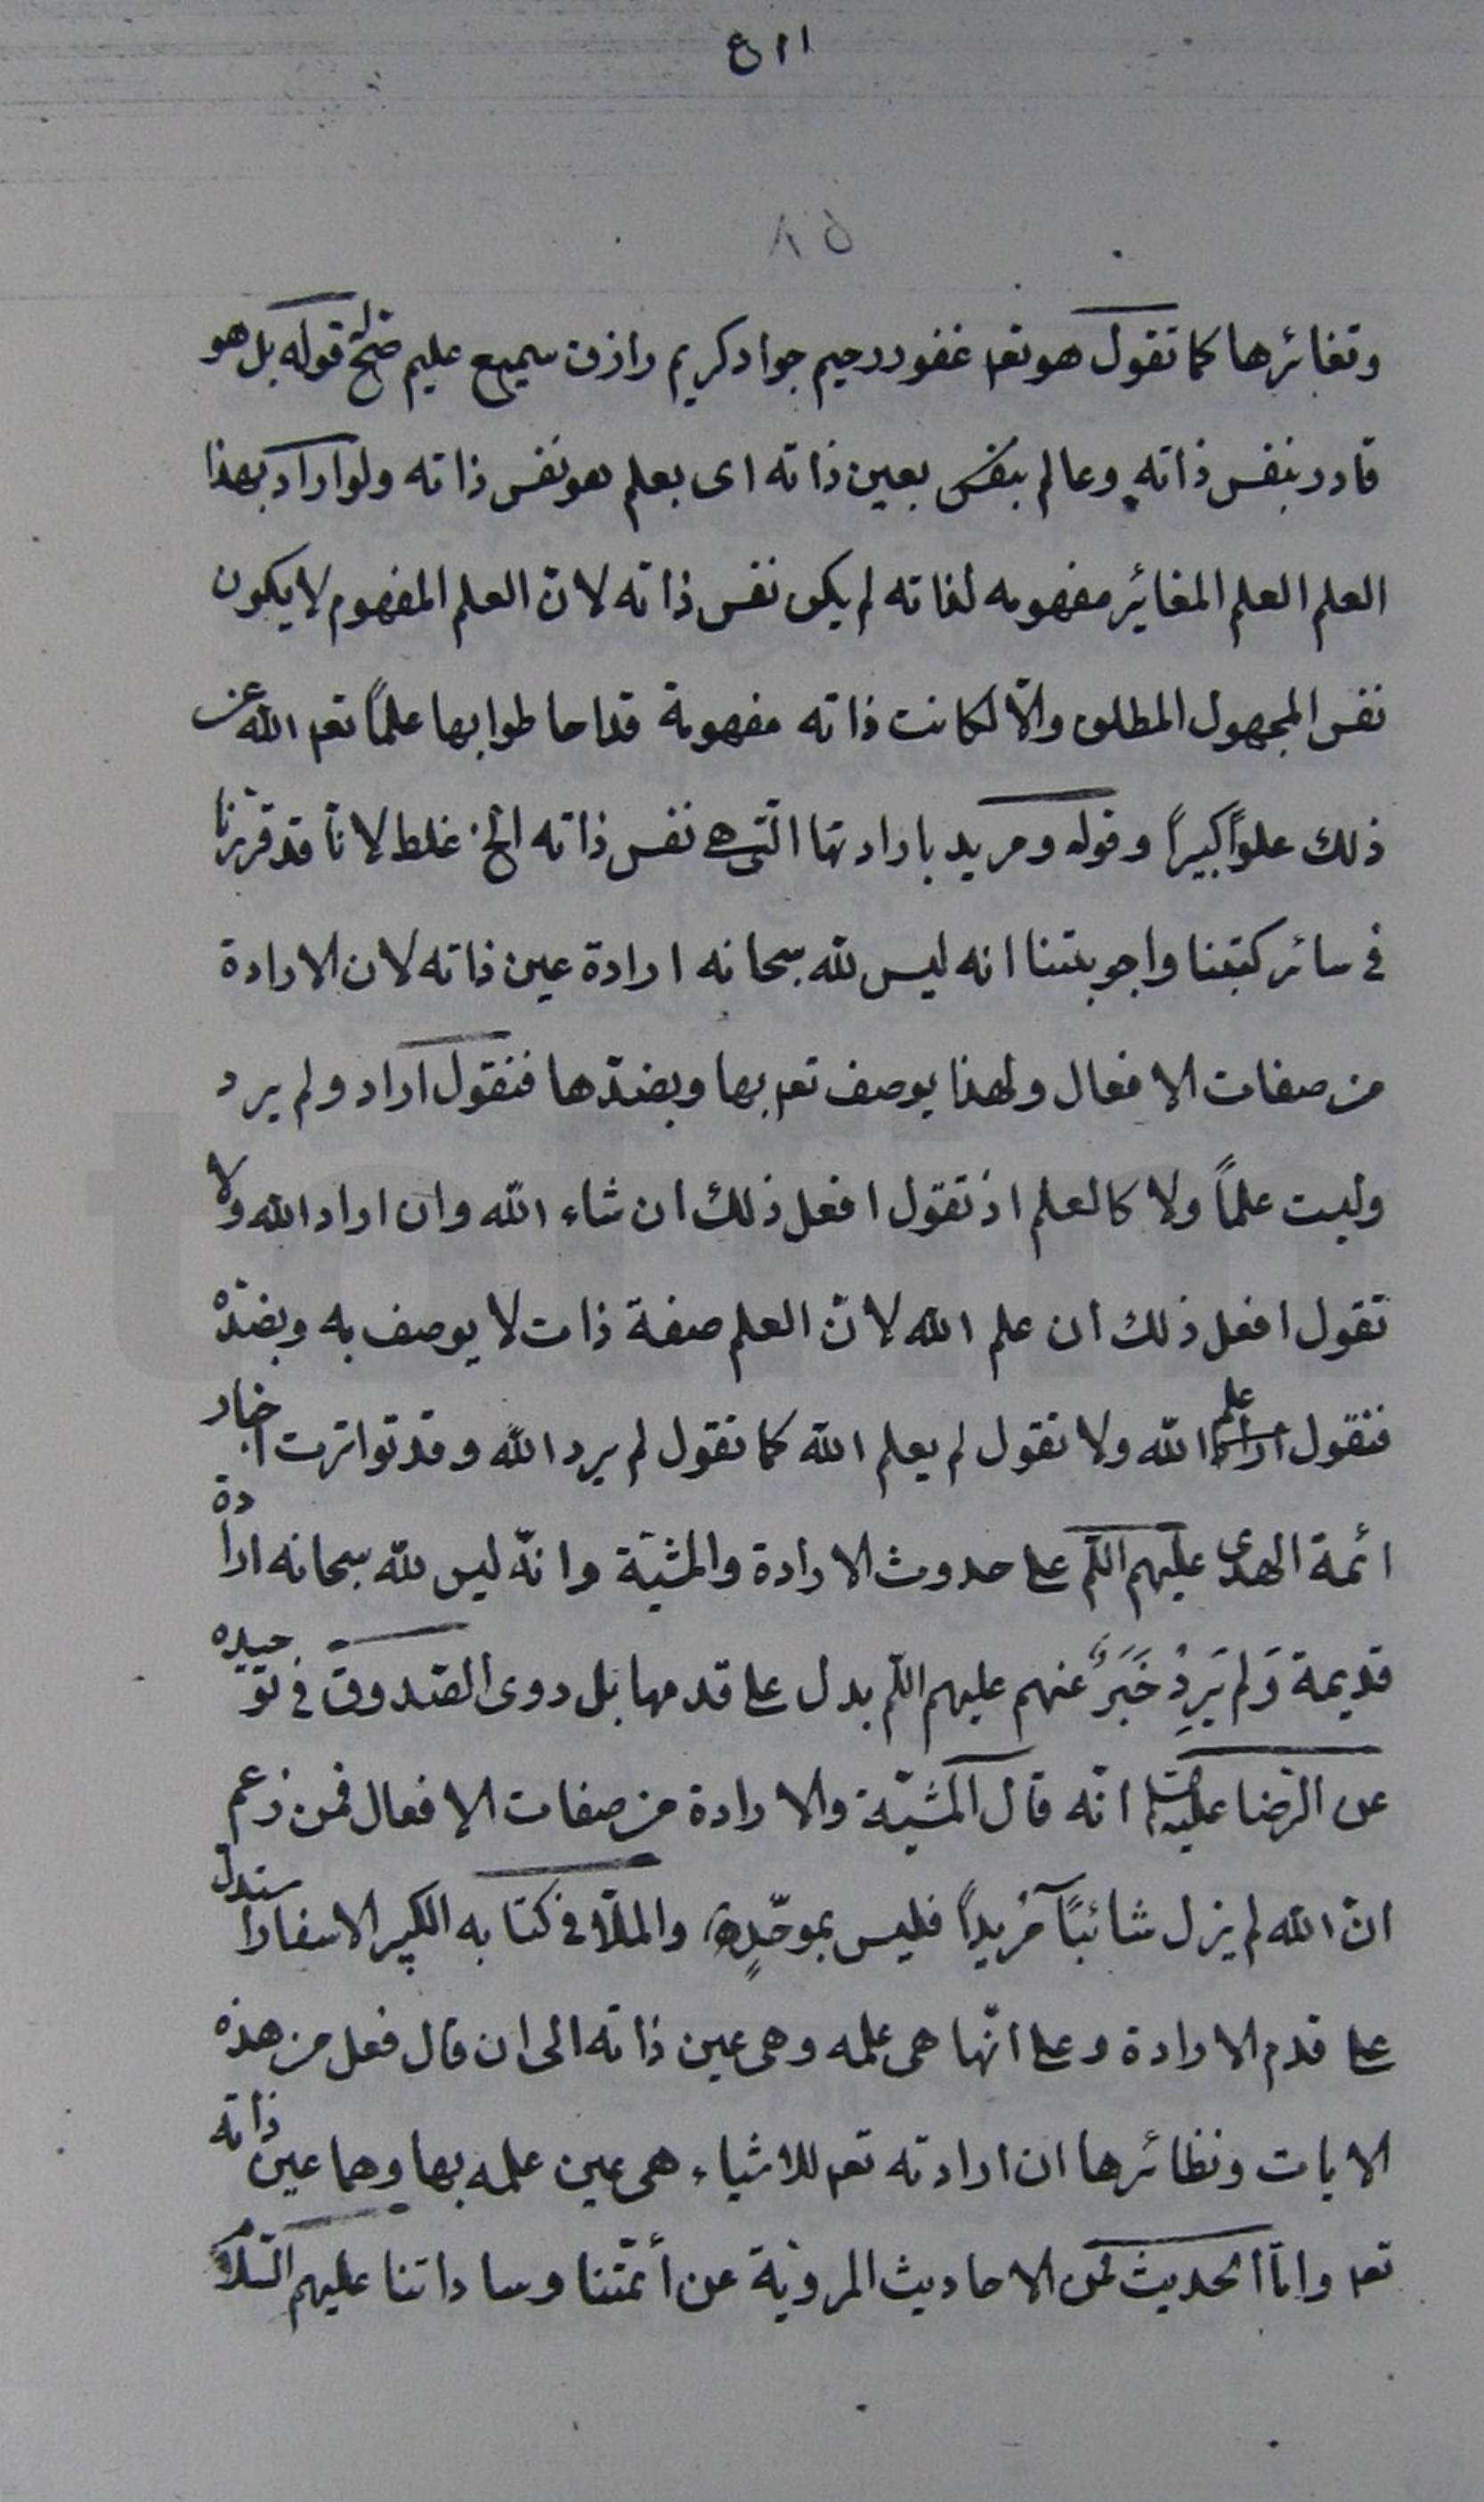 ٤١١
٨٥
وتغائرها كما تقول هو تعـ غفور رحيم جواد كريم رازق سميع عليم فتح قوله بل هو
قادر بنفس ذاته وعالم بعين ذاته اى بعلم هو نفس ذاته ولو اراد بهذا
العلم العلم المغائر مفهومه لذاته لم يكن نفس ذاته لانّ العلم المفهوم لا يكون
نفس المجهول المطلق والّا لكانت ذاته مفهومة قد احاطوا بها علمًا تعـ الله عن
ذلك علوًّا كبيرًا وقوله ومريد بارادتها الّتى هے نفس ذاته الخ غلط لانّا قد قرّرنا
فى سائر كتبنا واجوبتنا انه ليس لله سبحانه ارادة عين ذاته لان الارادة
من صفات الافعال ولهذا يوصف تعـ بها وبضدّها فنقول اراد ولم يرد
وليست علمًا ولا كالعلم اذ تقول افعل ذلك ان شاء الله وان اراد الله ولا
تقول افعل ذلك ان علم الله لانّ العلم صفة ذات لا يوصف به وبضدّه
فنقول علم الله ولا نقول لم يعلم الله كما نقول لم يرد الله وقد تواترت اخبار
ائمة الهدى عليهم السّلم على حدوث الارادة والمشيّة وانّه ليس لله سبحانه ارادة
قديمة وَلم يَرِدْ خَبَرٌ عنهم عليهم السّلم يدل على قدمها بل روى الصّدوق فى توحيده
عن الرّضا عليه السّلم انّه قال المشيّة والارادة من صفات الافعال فمن زعم
انّ الله لم يزل شائيًا مُريدًا فليس بموحّدٍ والملّا فى كتابه الكبير الاسفار استدل
على قدم الارادة وعلى انّها هى علمه وهى عين ذاته الى ان قال فعلم من هذه
الايات ونظائرها ان ارادته تعـ للاشياء هى عين علمه بها وهما عين ذاته
تعـ وامّا الحديث فمن الاحاديث المرويّة عن أئمّتنا وساداتنا عليهم السّلام